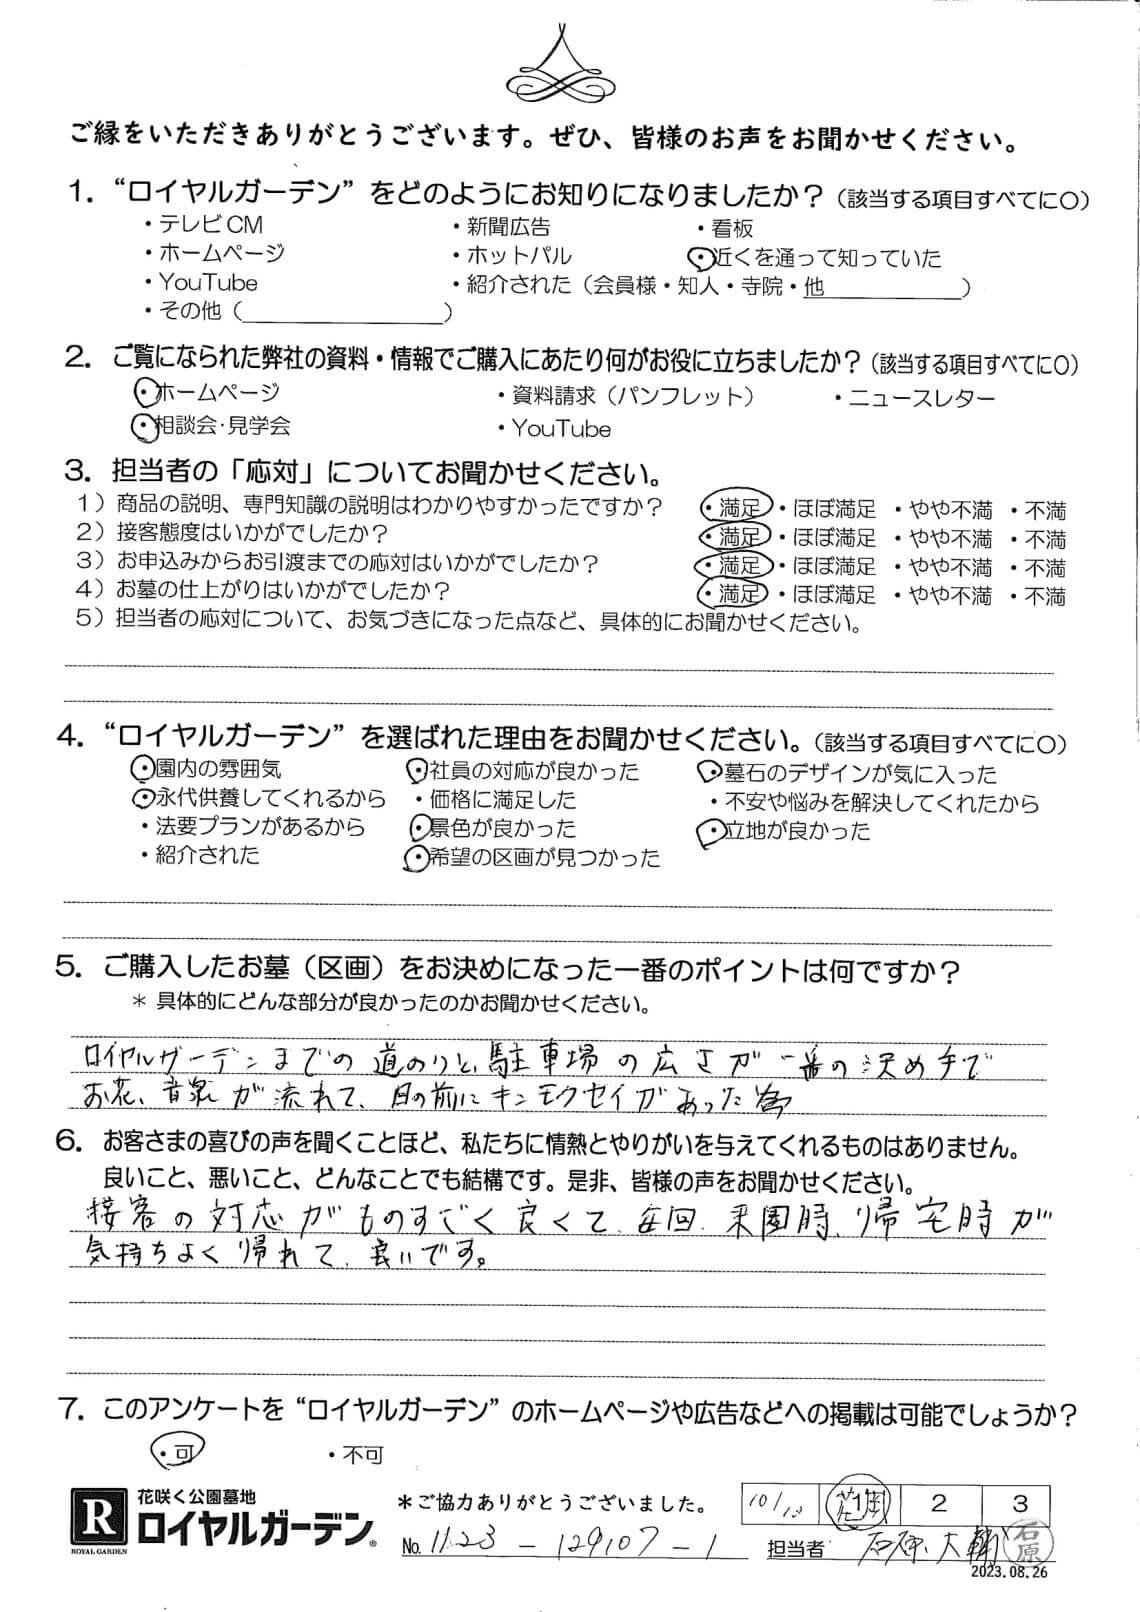 ご縁をいただきありがとうございます。ぜひ、皆様のお声をお聞かせください。
1．“ロイヤルガーデン”をどのようにお知りになりましたか？（該当する項目すべてに○）
・テレビCM ・新聞広告 ・看板
・ホームページ ・ホットパル ・近くを通って知っていた
・YouTube ・紹介された（会員様・知人・寺院・他＿＿＿＿＿＿）
・その他（＿＿＿＿＿＿＿＿）
2．ご覧になられた弊社の資料・情報でご購入にあたり何がお役に立ちましたか？（該当する項目すべてに○）
・ホームページ ・資料請求（パンフレット） ・ニュースレター
・相談会・見学会 ・YouTube
3．担当者の「応対」についてお聞かせください。
1）商品の説明、専門知識の説明はわかりやすかったですか？ ・満足 ・ほぼ満足 ・やや不満 ・不満
2）接客態度はいかがでしたか？ ・満足 ・ほぼ満足 ・やや不満 ・不満
3）お申込みからお引渡までの応対はいかがでしたか？ ・満足 ・ほぼ満足 ・やや不満 ・不満
4）お墓の仕上がりはいかがでしたか？ ・満足 ・ほぼ満足 ・やや不満 ・不満
5）担当者の応対について、お気づきになった点など、具体的にお聞かせください。
4．“ロイヤルガーデン”を選ばれた理由をお聞かせください。（該当する項目すべてに○）
・園内の雰囲気 ・社員の対応が良かった ・墓石のデザインが気に入った
・永代供養してくれるから ・価格に満足した ・不安や悩みを解決してくれたから
・法要プランがあるから ・景色が良かった ・立地が良かった
・紹介された ・希望の区画が見つかった
5．ご購入したお墓（区画）をお決めになった一番のポイントは何ですか？
＊ 具体的にどんな部分が良かったのかお聞かせください。
ロイヤルガーデンまでの道のりと、駐車場の広さが一番の決め手で
お花、音楽が流れて、目の前にキンモクセイがあった為
6．お客さまの喜びの声を聞くことほど、私たちに情熱とやりがいを与えてくれるものはありません。
良いこと、悪いこと、どんなことでも結構です。是非、皆様の声をお聞かせください。
接客の対応がものすごく良くて、毎回、来園時、帰宅時が
気持ちよく帰れて、良いです。
7．このアンケートを“ロイヤルガーデン”のホームページや広告などへの掲載は可能でしょうか？
・可 ・不可
R 花咲く公園墓地 ＊ご協力ありがとうございました。 10/13 2 3
ROYAL GARDEN ロイヤルガーデン® No. 1123 - 129107 - 1 担当者 石原 大輔 石原
2023.08.26